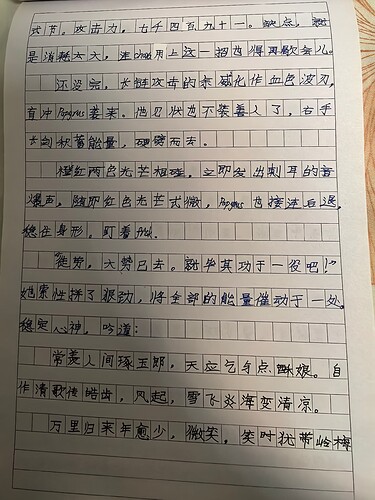 六节。攻击力，七千四百九十一。缺点，就
是消耗太大，连她用上这一招也得再歇会儿。
还没完，长链攻击的余威化作血色波刃，
直冲Pegasus袭来。他见状也不装善人了，右手
长剑积蓄能量，硬劈而去。
橙红两色光芒相碰，立即发出刺耳的音
爆声，随即红色光芒式微，Pegasus也接连后退，
稳住身形，盯着她。
“徒劳，大势已去。就毕其功于一役吧！”
她索性拼了狠劲，将全部的能量催动于一处。
稳定心神，吟道：
常羡人间琢玉郎，天应乞与点酥娘。自
作清歌传皓齿，风起，雪飞炎海变清凉。
万里归来年愈少，微笑，笑时犹带岭梅